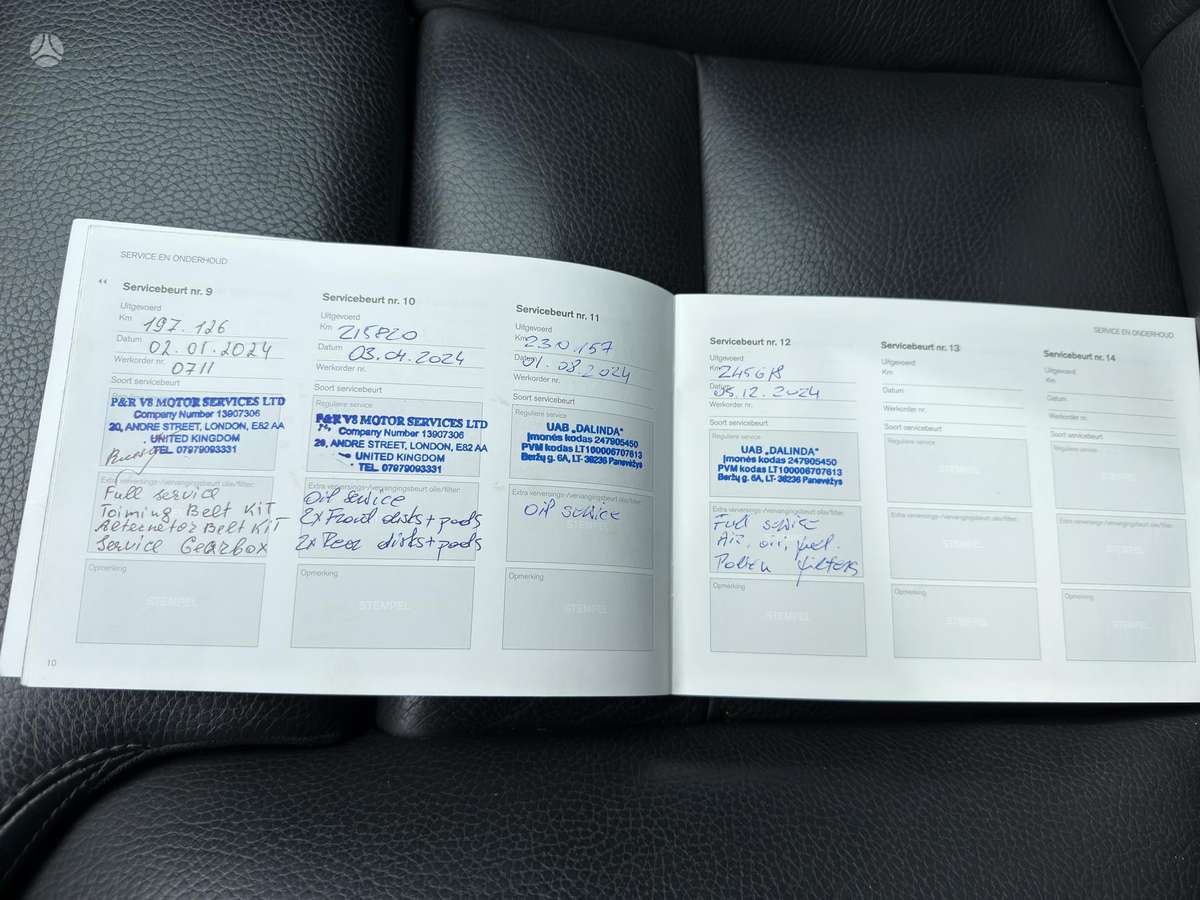 SERVICE EN ONDERHOUD
Servicebeurt nr. 9
Uitgevoerd
Km 197.126
Datum 02.01.2024
Werkorder nr. 0711
Soort servicebeurt
P&R V8 MOTOR SERVICES LTD
Company Number 13907306
20, ANDRE STREET, LONDON, E82 AA
UNITED KINGDOM
TEL 07979093331
Extra verversings-/vervangingsbeurt olie/filter:
Full service
Toiming Belt KiT
Alternetor Belt KiT
Service Gearbox
Opmerking
STEMPEL
10
Servicebeurt nr. 10
Uitgevoerd
Km 215820
Datum 03.04.2024
Werkorder nr.
Soort servicebeurt
Reguliere service
P&R V8 MOTOR SERVICES LTD
Company Number 13907306
20, ANDRE STREET, LONDON, E82 AA
UNITED KINGDOM
TEL 07979093331
Extra verversings-/vervangingsbeurt olie/filter:
Oil service
2x Front disks + pads
2x Rear disks + pads
Opmerking
STEMPEL
Servicebeurt nr. 11
Uitgevoerd
Km
Datum 01.08.2024
Werkorder nr.
Soort servicebeurt
Reguliere service
UAB „DALINDA"
Įmonės kodas 247905450
PVM kodas LT100006707613
Beržų g. 6A, LT- 36236 Panevėžys
Extra verversings-/vervangingsbeurt olie/filter:
Oil service
STEMPEL
Opmerking
STEMPEL
SERVICE EN ONDERHOUD
Servicebeurt nr. 12
Uitgevoerd
Km 245678
Datum 05.12.2024
Werkorder nr.
Soort servicebeurt
Reguliere service
UAB „DALINDA"
Įmonės kodas 247905450
PVM kodas LT100006707613
Beržų g. 6A, LT- 36236 Panevėžys
Extra verversings-/vervangingsbeurt olie/filter:
Full service
Air, oil, fuel.
Pollen filters
Opmerking
STEMPEL
Servicebeurt nr. 13
Uitgevoerd
Km
Datum
Werkorder nr.
Soort servicebeurt
Reguliere service
STEMPEL
Extra verversings-/vervangingsbeurt olie/filter:
STEMPEL
Opmerking
STEMPEL
Servicebeurt nr. 14
Uitgevoerd
Km
Datum
Werkorder nr.
Soort servicebeurt
Reguliere service
STEMPEL
Extra verversings-/vervangingsbeurt olie/filter:
STEMPEL
Opmerking
STEMPEL